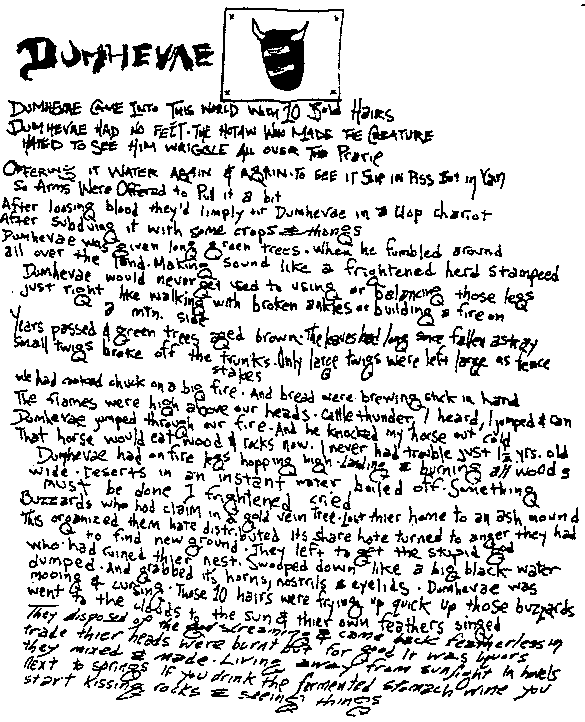 DUMHEVAE
DUMHEVAE CAME INTO THIS WORLD WITH 10 BOLD HAIRS
DUMHEVAE HAD NO FEET. THE WHO MADE THE CREATURE
HATED TO SEE HIM WRIGGLE ALL OVER THE PRARIE
OFFERING IT WATER AGAIN & AGAIN. TO SEE IT SLIP IN PISS BUT IN VAIN
SO ARMS WERE OFFERED TO PULL IT A BIT
After loosing blood they'd limply sit Dumhevae in a Clop chariot
After subduing it with some crops & thongs
Dumhevae was given long green trees. When he fumbled around
all over the land. Making Sound like a frightened herd stampeed
Dumhevae would never get used to using or balancing those legs
just right like walking with broken ankles or building a fire on
a mtn. side
Years passed & green trees aged brown. The leaves had long since fallen astray
small twigs broke off the trunks. Only large twigs were left large as fence
stakes
we had cooked chuck on a big fire. And bread were brewing stick in hand
The flames were high above our heads. Cattle thunder, I heard, I jumped & ran
Dumhevae jumped through our fire. And he knocked my horse out cold
That horse would eat wood & rocks now. I never had trouble just 12 yrs. old
Dumhevae had on fire legs hopping high. Landing & burning all woods
wide. Deserts in an instant water boiled off. Something
must be done I frightened cried
Buzzards who had claim in a gold vein Tree. Lost thier home to an ash mound
This organized them hate distributed its share hate turned to anger they had
to find new ground. They left to get the stupid God
who had ruined thier nest. Swooped down like a big black water
dumped. And grabbed its horns, nostrils & eyelids. Dumhevae was
mooing & cursing. Those 10 hairs were frying up quick up those buzzards
went to the clouds to the sun & thier own feathers singed
They disposed of the god screaming & came back featherless in
trade thier heads were burnt but for good it was liquors
they mixed & made. Living away from sunlight in hovels
next to springs if you drink the fermented stomach wine you
start kissing rocks & seeing things